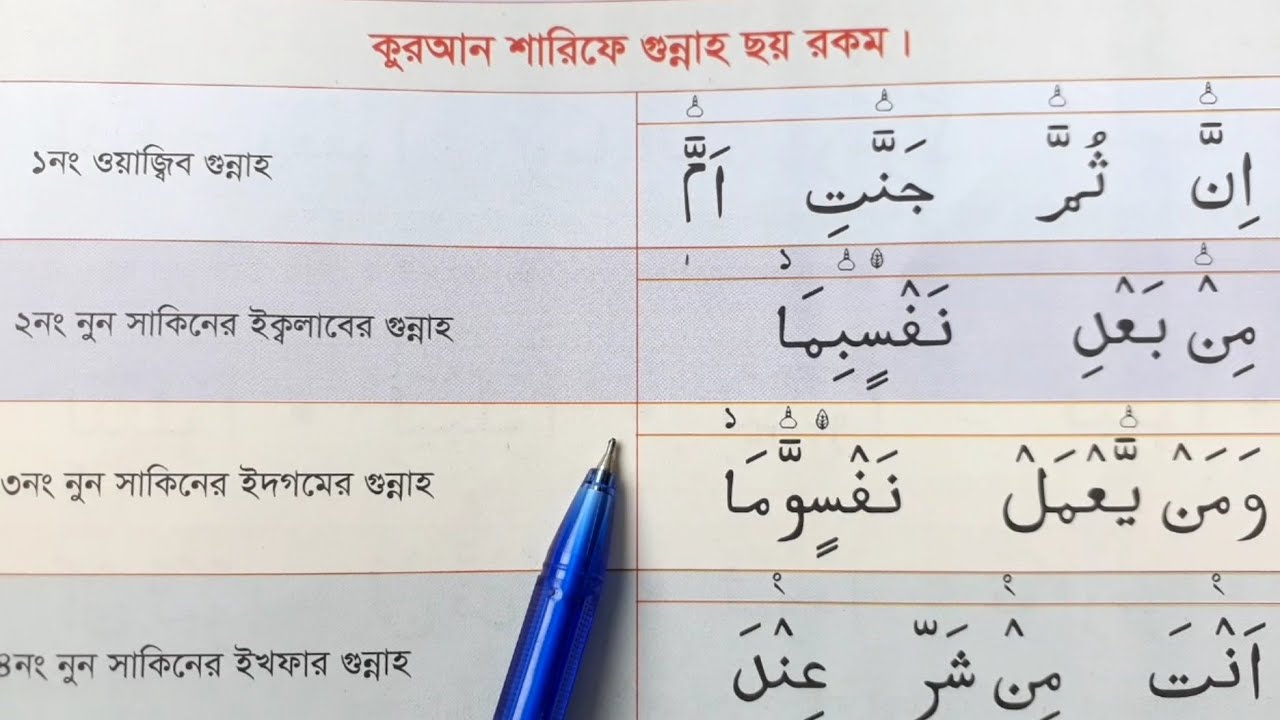 কুরআন শারিফে গুন্নাহ ছয় রকম।
১নং ওয়াজ্বিব গুন্নাহ
اِنَّ ثُمَّ جَنَّتِ اَمَّ
২নং নুন সাকিনের ইক্বলাবের গুন্নাহ
১
مِنْۢ بَعْدِ نَفْسٍۢبِمَا
৩নং নুন সাকিনের ইদগমের গুন্নাহ
১
وَمَنْ يَّعْمَلْ نَفْسٍوَّمَا
৪নং নুন সাকিনের ইখফার গুন্নাহ
২ ২ ২
اَنْتَ مِنْ شَرِّ عِنْدَ